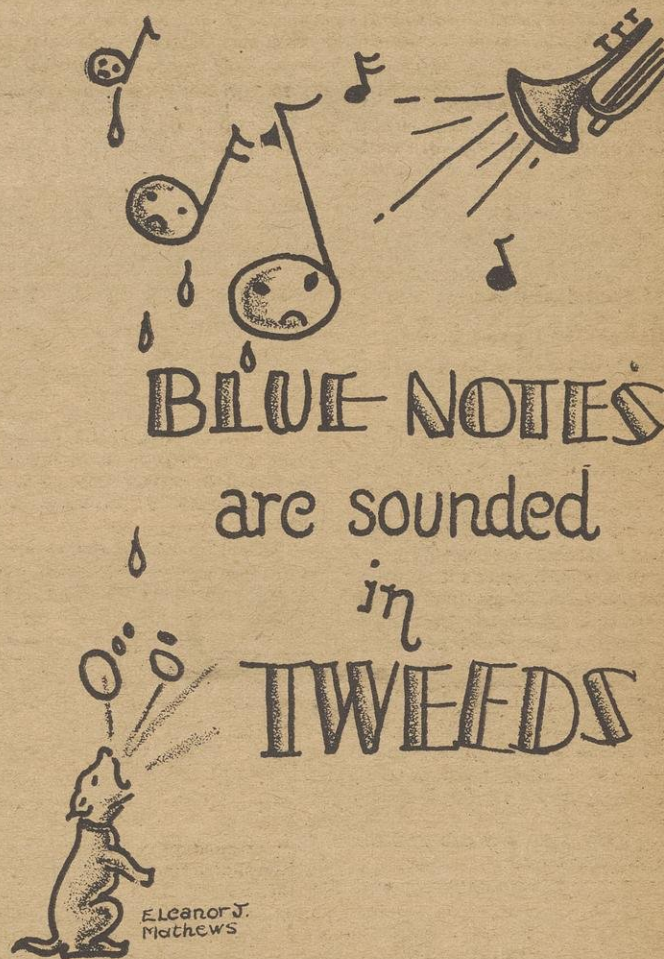 BLUE NOTES
are sounded
in
TWEEDS
ELeanor J.
Mathews